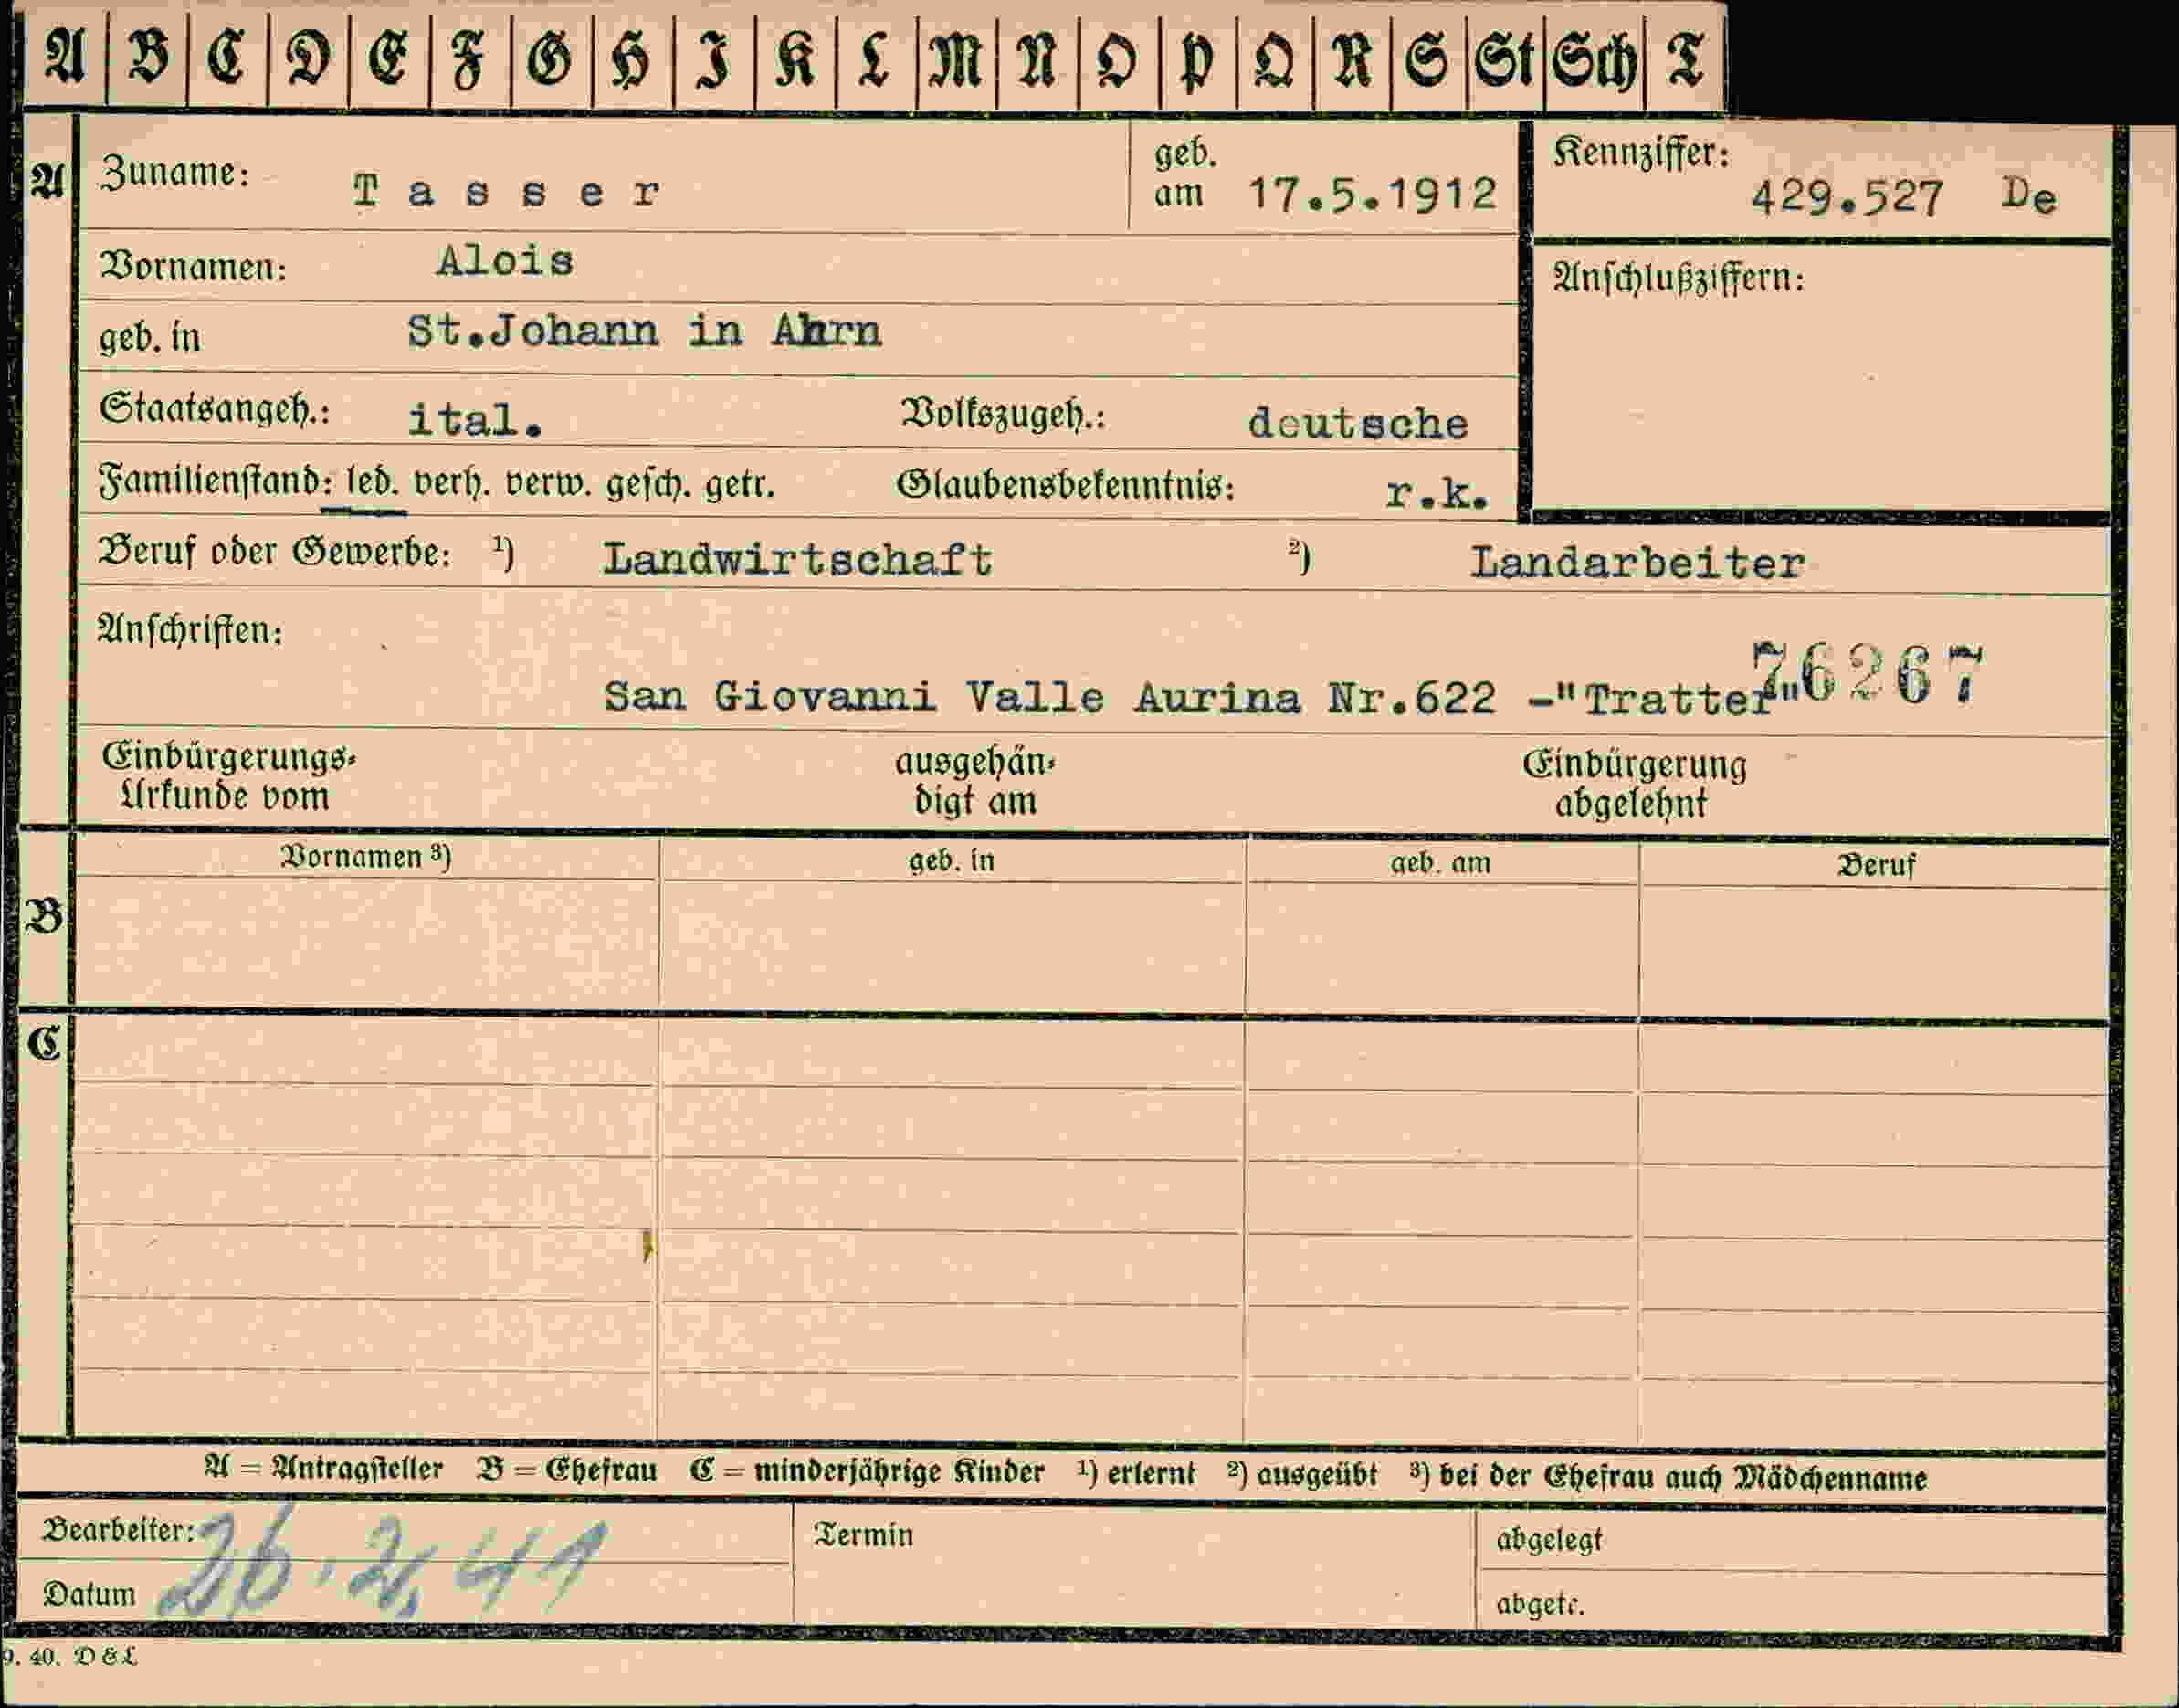 A B C D E F G H I K L M N O P Q R S St Sch T
A Zuname: Tasser geb. am 17.5.1912 Kennziffer: 429.527 De
Vornamen: Alois Anschlußziffern:
geb. in St.Johann in Ahrn
Staatsangeh.: ital. Volkszugeh.: deutsche
Familienstand: led. verh. verw. gesch. getr. Glaubensbekenntnis: r.k.
Beruf oder Gewerbe: ¹) Landwirtschaft ²) Landarbeiter
Anschriften:
San Giovanni Valle Aurina Nr.622 -"Tratter" 76267
Einbürgerungs-Urkunde vom ausgehändigt am Einbürgerung abgelehnt
B Vornamen ³) geb. in geb. am Beruf
C
A = Antragsteller B = Ehefrau C = minderjährige Kinder ¹) erlernt ²) ausgeübt ³) bei der Ehefrau auch Mädchenname
Bearbeiter: Termin abgelegt
Datum 26.2.41 abgetr.
9. 40. D & L